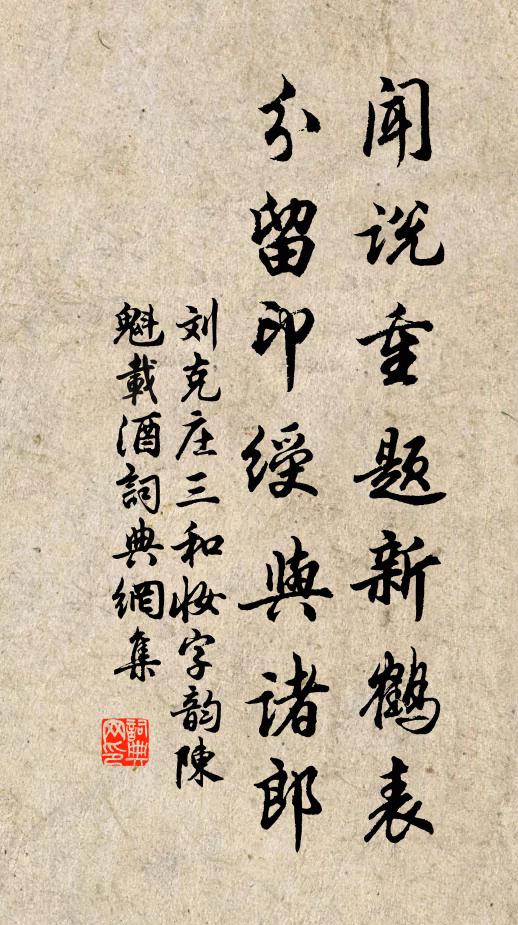 闻说重题新鹤表
分留印绶与诸郎
刘克庄三和妆字韵陳
魁載酒詞典網集
詞典网印